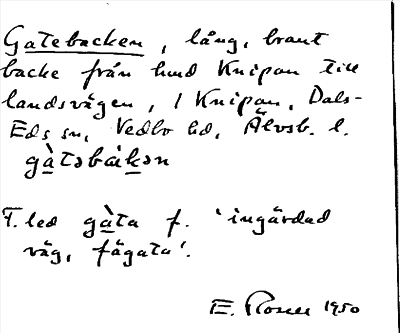 Gatebacken, lång, brant
backe från hmd Knipan till
landsvägen, i Knipan, Dals-
Eds sn, Vedbo hd, Älvsb. l.
gàtəbàkən
F. led gàta f. 'ingärdad
väg, fägata'.
E. Rosell 1950